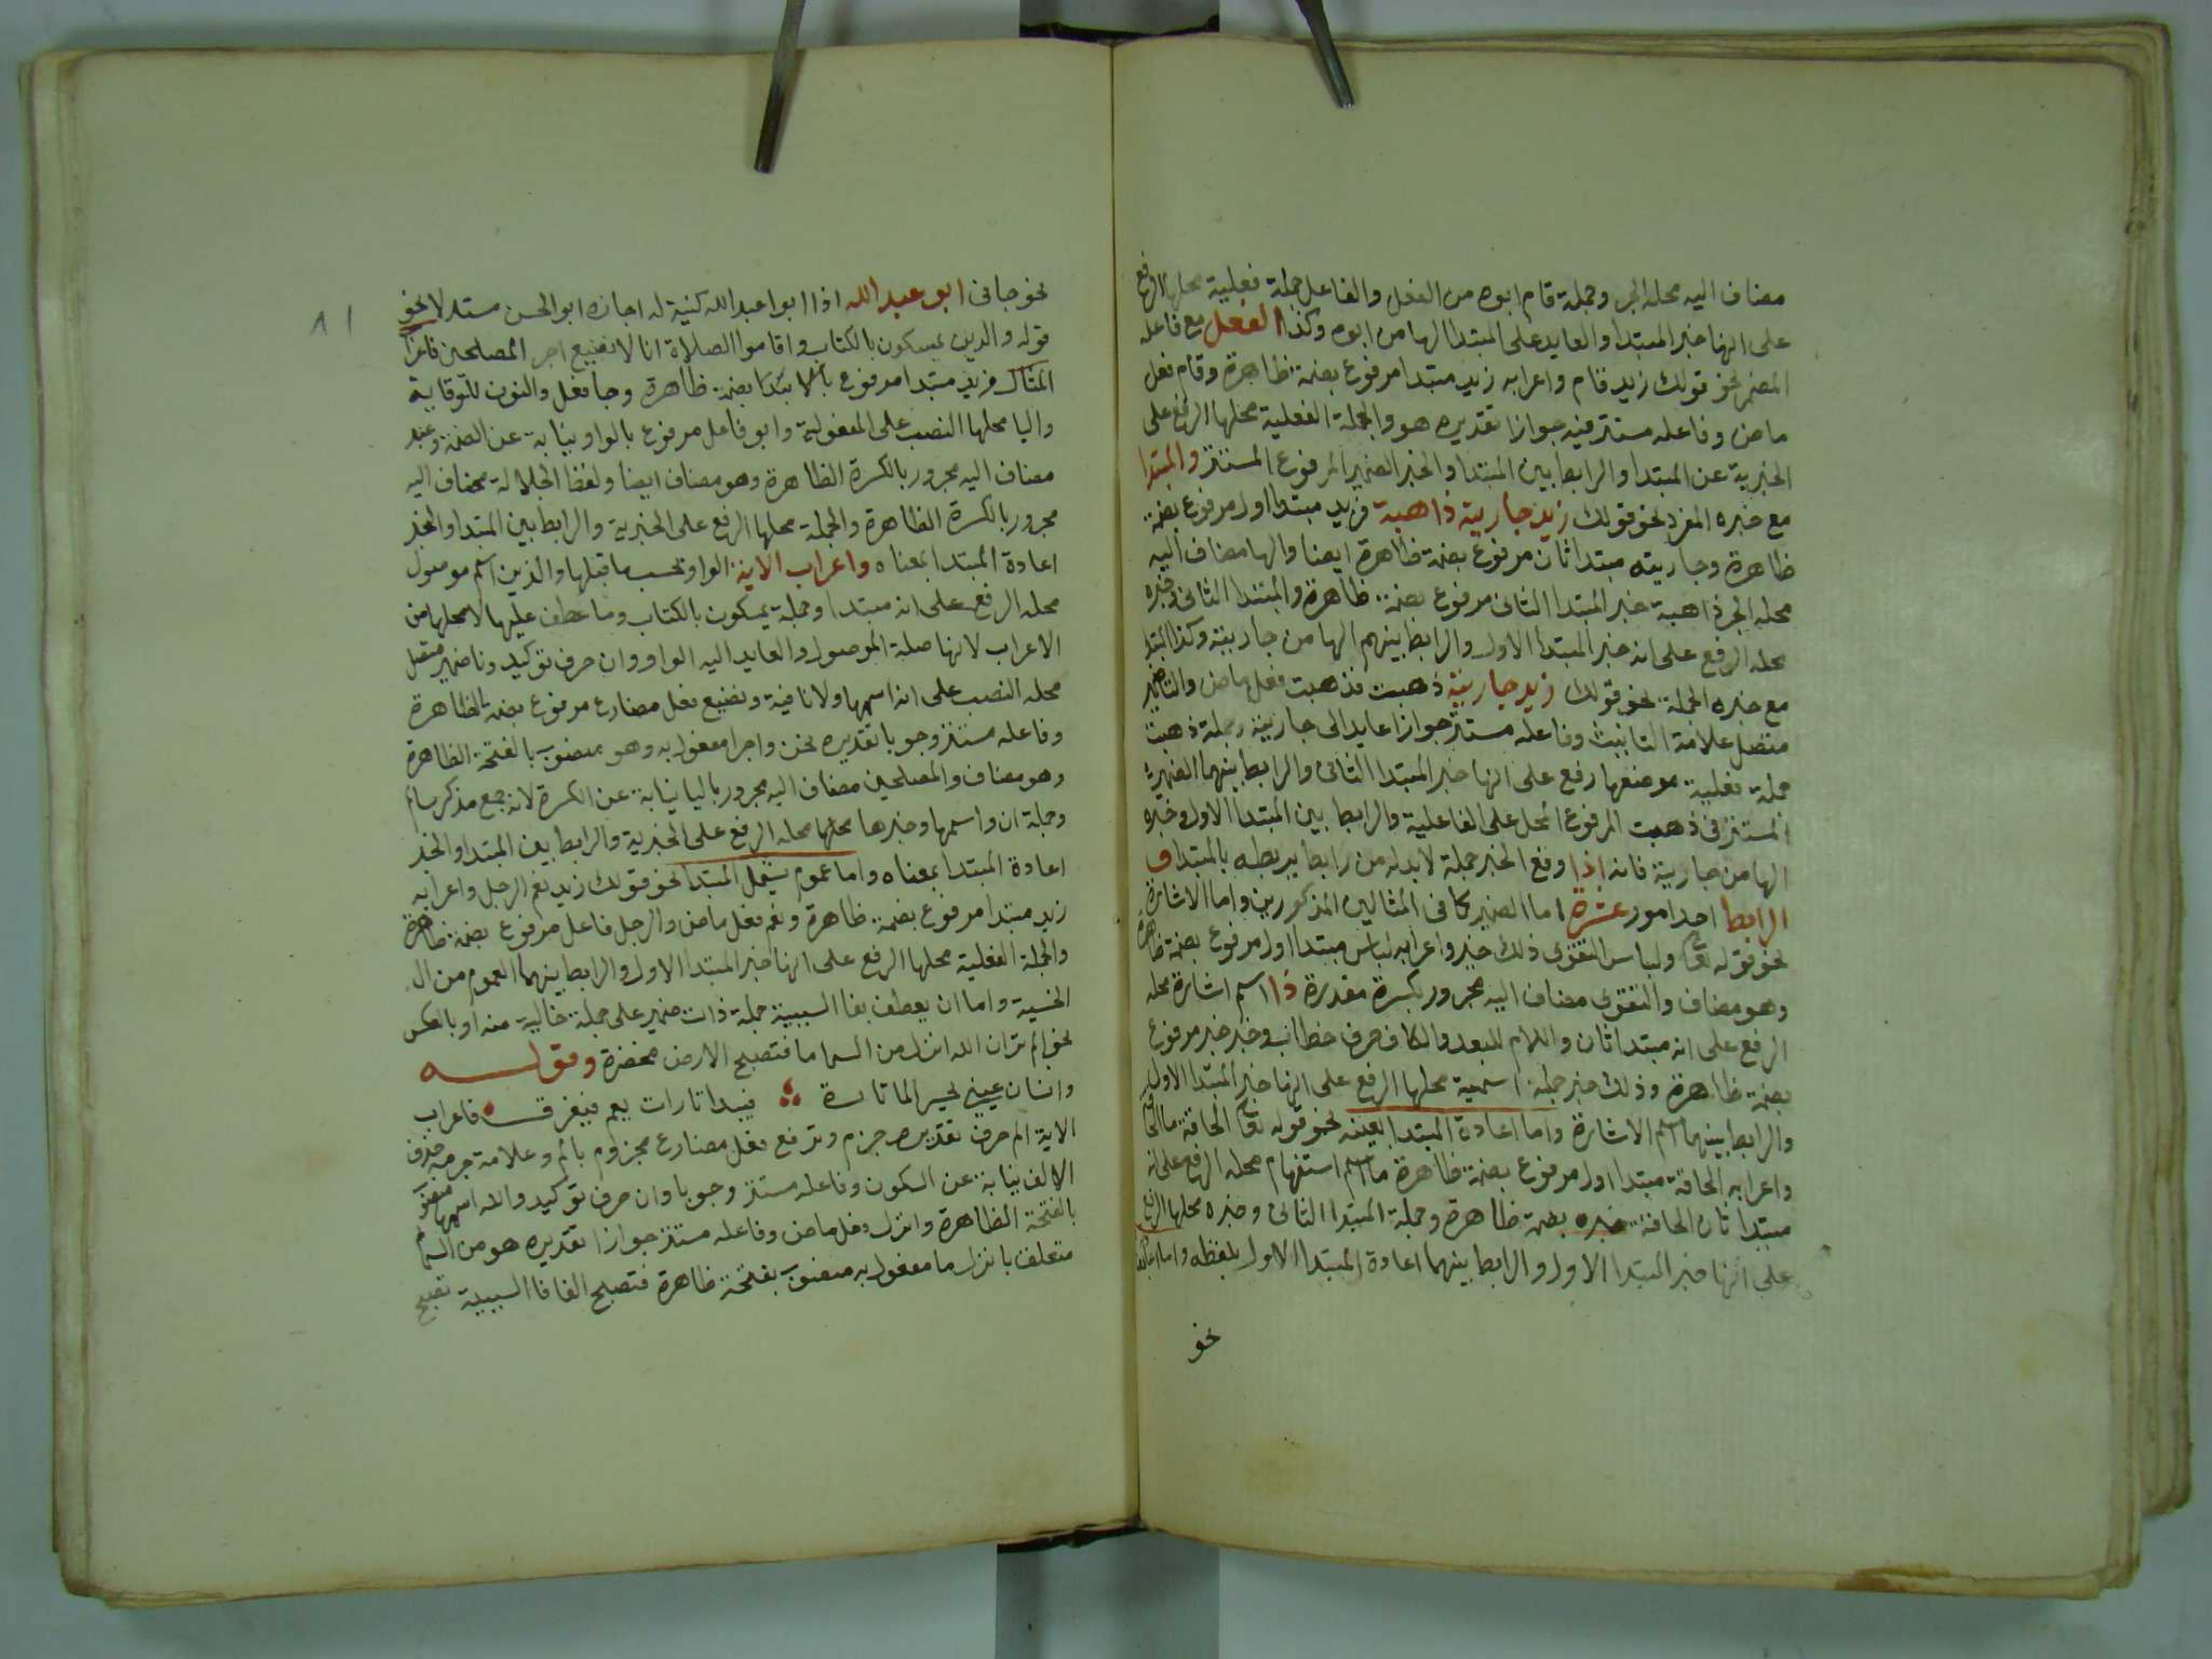 مضاف اليه محله الجر وجملة قام ابوه من الفعل والفاعل جملة فعلية محلها الرفع
على انها خبر المبتدا والعايد على المبتدا الها من ابوه وكذا الفعل مع فاعله
المضمر نحو قولك زيد قام واعرابه زيد مبتدا مرفوع بضمة ظاهرة وقام فعل
ماض وفاعله مستتر فيه جوازا تقديره هو والجملة الفعلية محلها الرفع على
الخبرية عن المبتدا والرابط بين المبتدا والخبر الضمير المرفوع المستتر والمبتدا
مع خبره المفرد نحو قولك زيد جاريته ذاهبة فزيد مبتدا اول مرفوع بضمة
ظاهرة وجاريته مبتدا ثان مرفوع بضمة ظاهرة ايضا والها مضاف اليه
محله الجر ذاهبة خبر المبتدا الثانى مرفوع بضمة ظاهرة والمبتدا الثانى وخبره
محله الرفع على انه خبر المبتدا الاول والرابط بينهم الها من جاريته وكذا المبتدا
مع خبره الجملة نحو قولك زيد جاريته ذهبت فذهبت فعل ماض والتا ضمير
متصل علامة التانيث وفاعله مستتر جوازا عايد الى جاريته وجملة ذهبت
جملة فعلية موضعها رفع على انها خبر المبتدا الثانى والرابط بينهما الضمير
المستتر فى ذهبت المرفوع المحل على الفاعلية والرابط بين المبتدا الاول وخبره
الها من جاريته فانه اذا وقع الخبر جملة لابد له من رابط يربطه بالمبتدا و
الرابط احد امور عشرة اما الضمير كما فى المثالين المذكورين واما الاشارة
نحو قوله تعا ولباس التقوى ذلك خير واعرابه لباس مبتدا اول مرفوع بضمة ظاهرة
وهو مضاف والتقوى مضاف اليه مجرور بكسرة مقدرة ذا اسم اشارة محله
الرفع على انه مبتدا ثان واللام للبعد والكاف حرف خطاب وخير خبر مرفوع
بضمة ظاهرة وذلك خير جملة اسمية محلها الرفع على انها خبر المبتدا الاول
والرابط بينهما اسم الاشارة واما اعادة المبتدا بعينه نحو قوله تعا الحاقة ما الحاقة
واعرابه الحاقة مبتدا اول مرفوع بضمة ظاهرة ما اسم استفهام محله الرفع على انه
مبتدا ثان الحاقة خبره بضمة ظاهرة وجملة المبتدا الثانى وخبره محلها الرفع
على انها خبر المبتدا الاول والرابط بينهما اعادة المبتدا الاول بلفظه واما
نحو
نحو جانى ابو عبد الله اذا ابوا عبد الله كنية له اجازه ابو الحسن مستدلا نحو
قوله والدين يمسكون بالكتاب واقاموا الصلاة انا لا نضيع اجر المصلحين فاعرا
المثال فزيد مبتدا مرفوع بالابتدا بضمة ظاهرة وجا فعل والنون للوقاية
واليا محلها النصب على المفعولية وابو فاعل مرفوع بالواو نيابة عن الضمة وعبد
مضاف اليه مجرور بالكسرة الظاهرة وهو مضاف ايضا ولفظ الجلالة مضاف اليه
مجرور بالكسرة الظاهرة والجملة محلها الرفع على الخبرية والرابط بين المبتدا والخبر
اعادة المبتدا بمعناه واعراب الاية الواو بحسب ما قبلها والذين اسم موصول
محله الرفع على انه مبتدا وجملة يمسكون بالكتاب وما عطف عليها لا محلها من
الاعراب لانها صلة الموصول والعايد اليه الواو وان حرف توكيد ونا ضمير متصل
محله النصب على انه اسمها ولا نافية ونضيع فعل مضارع مرفوع بضمة الظاهرة
وفاعله مستتر وجوبا تقديره نحن واجر مفعول به وهو منصوب بالفتحة الظاهرة
وهو مضاف والمصلحين مضاف اليه مجرور باليا نيابة عن الكسرة لانه جمع مذكر سالم
وجملة ان واسمها وخبرها محلها محله الرفع على الخبرية والرابط بين المبتدا والخبر
اعادة المبتدا بمعناه واما عموم يشمل المبتدا نحو قولك زيد نعم الرجل واعرابه
زيد مبتدا مرفوع بضمة ظاهرة ونعم فعل ماض والرجل فاعل مرفوع بضمة ظاهرة
والجملة الفعلية محلها الرفع على انها خبر المبتدا الاول والرابط بينهما العموم من ال
الجنسية واما ان يعطف بفا السببية جملة ذات ضمير على جملة خالية منه او بالعكس
نحو الم تر ان الله انزل من السما ما فتصبح الارض مخضرة وقوله
وانسان عينى يحسر الما تارة فيبدا تارات يجم فيغرق فاعراب
الاية الم حرف تقدير جزم وتر فع فعل مضارع مجزوم بالم وعلامة جزمه حذف
الالف نيابة عن السكون وفاعله مستتر وجوبا وان حرف توكيد والله اسمها منصوب
بالفتحة الظاهرة وانزل فعل ماض وفاعله مستتر جوازا تقديره هو من السما
متعلق بانزل ما مفعول به منصوب بفتحة ظاهرة فتصبح الفا فا السببية تصبح